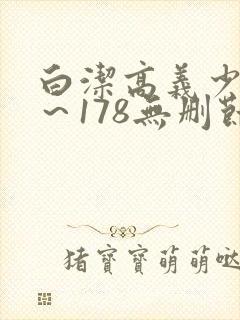 白潔高義少
～178無刪節
猪寶寶萌萌噠